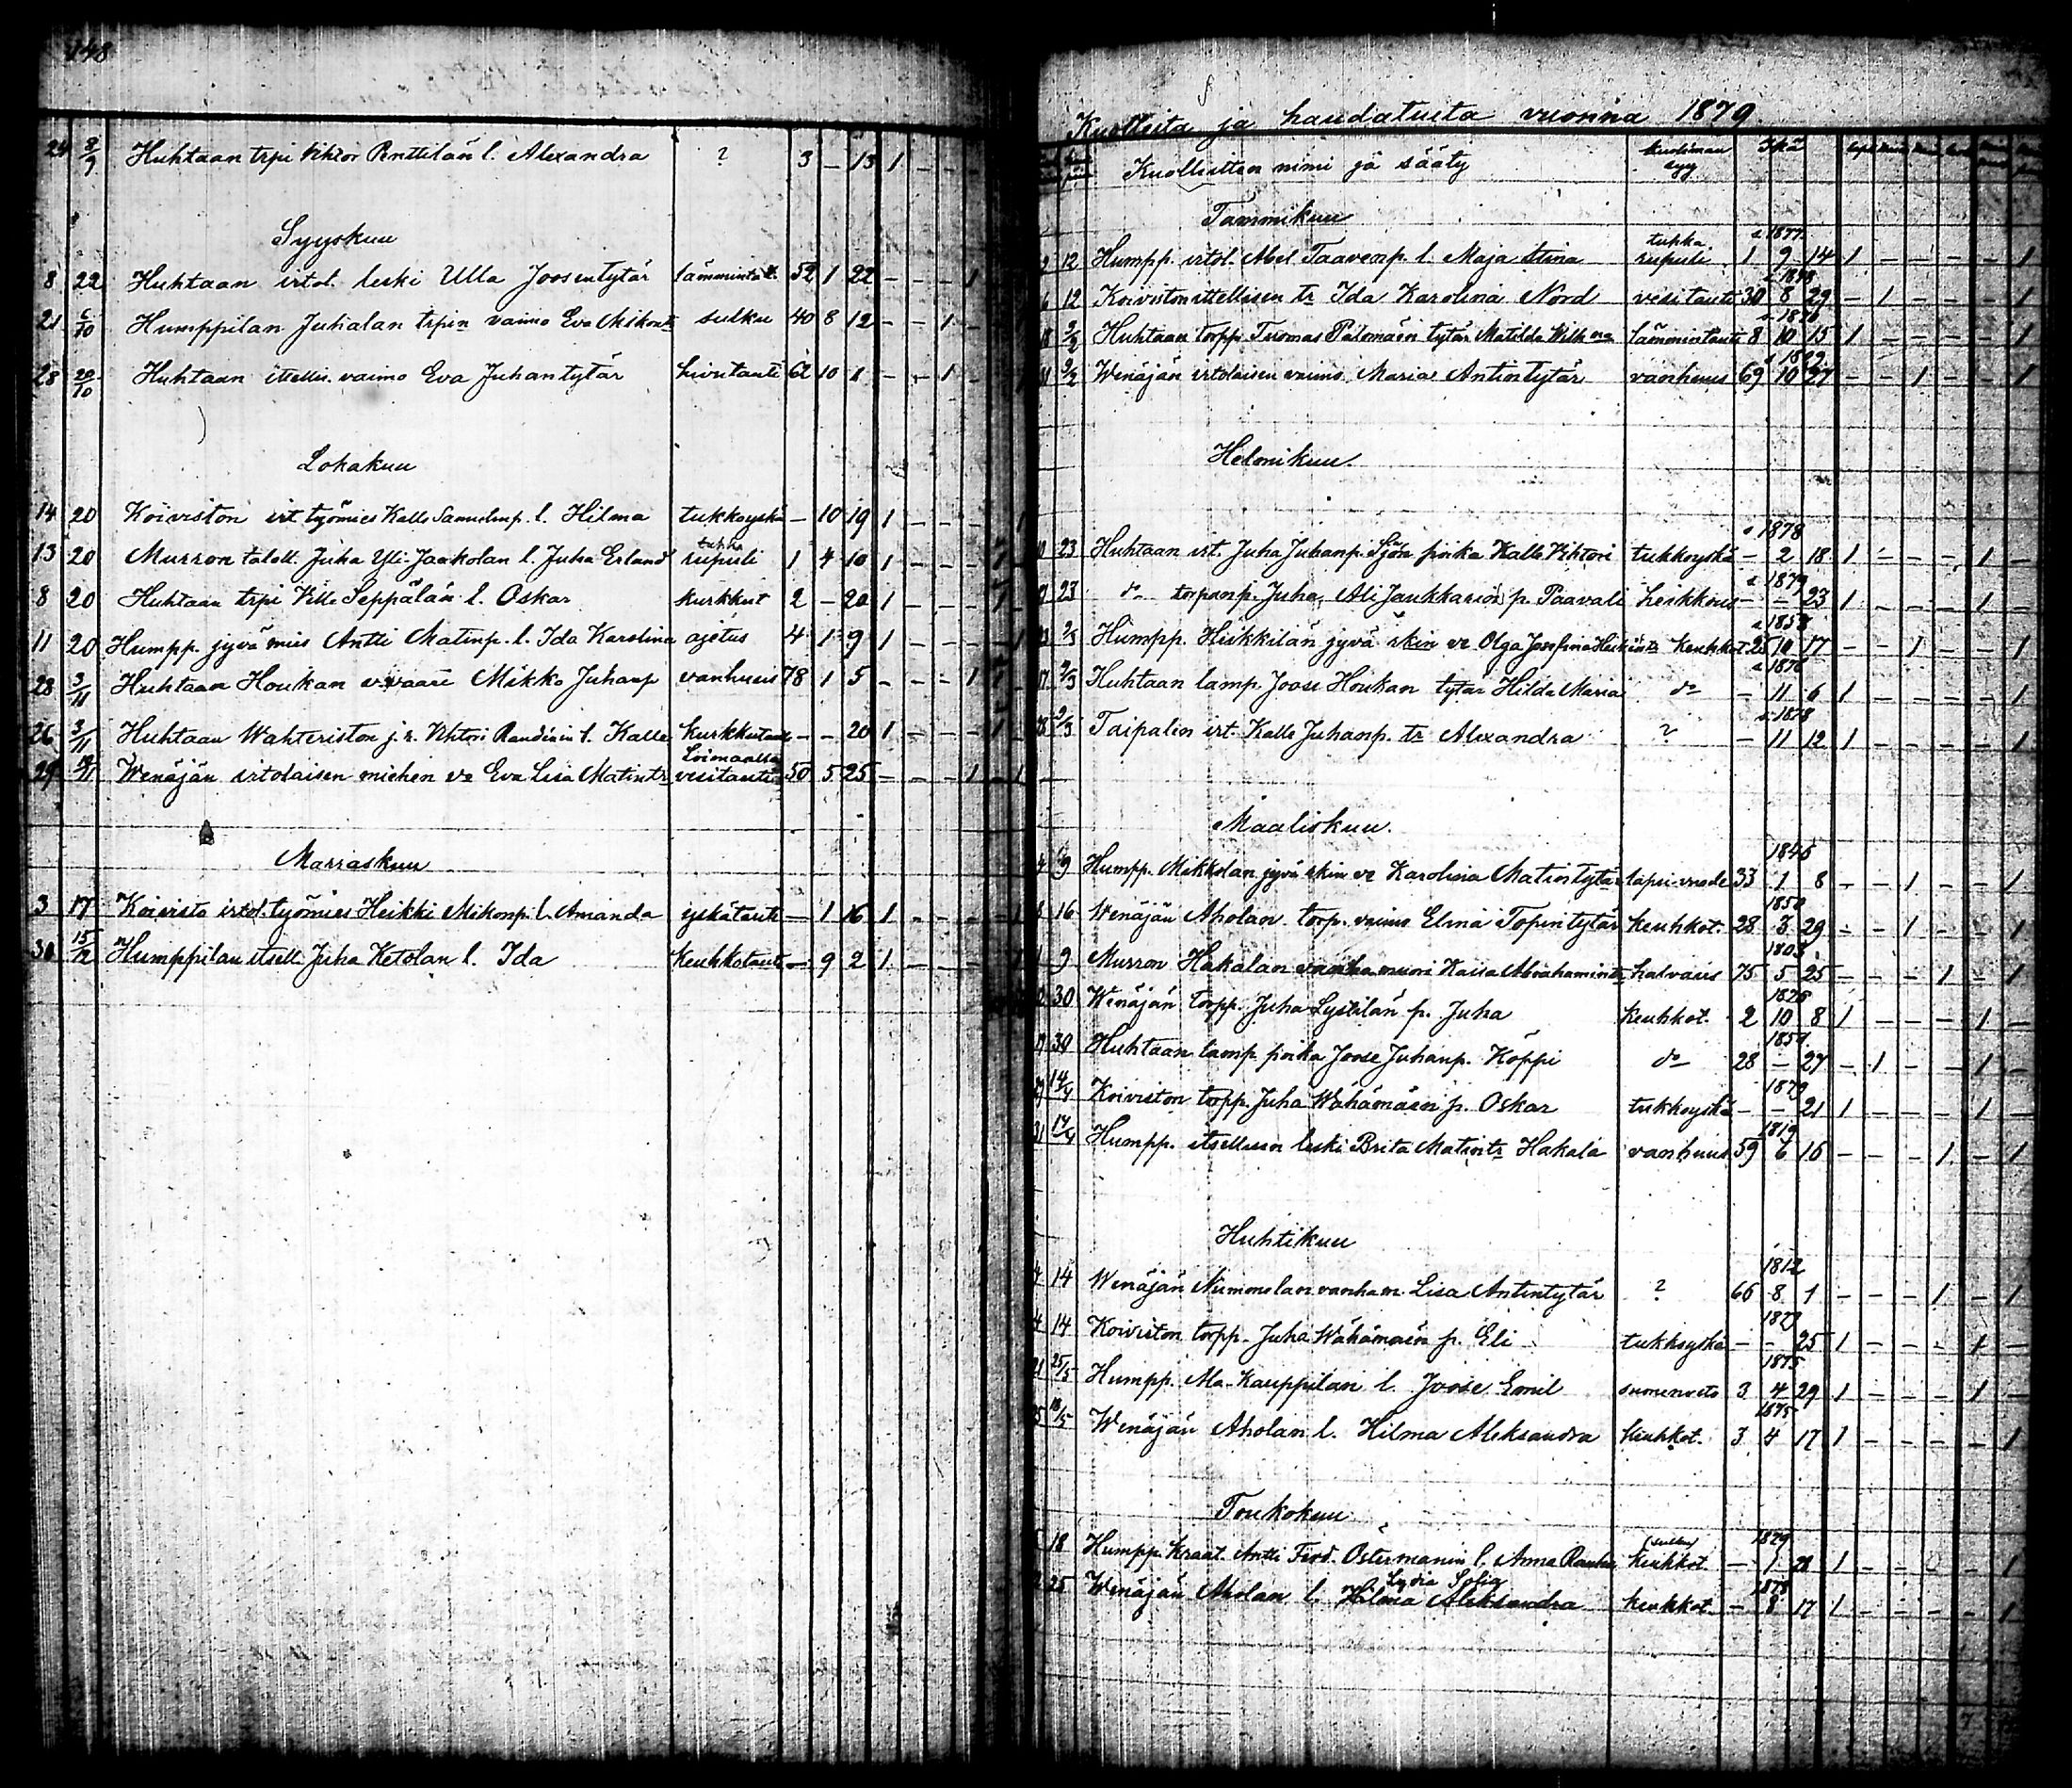 148
24 8/9 Huhtaan trpr Viktor Penttilän l. Alexandra ? 3 – 13 1 – – –
Syyskuu
8 22 Huhtaan irtol. leski Ulla Joosentytär lämmintät. 52 1 22 – – – 1
21 6/10 Humppilan Juhalan trpin vaimo Eva Mikont. sulku 40 8 12 – – 1 –
28 20/10 Huhtaan itsellis. vaimo Eva Juhantytär hivutauti 62 10 1 – – 1 –
Lokakuu
14 20 Koiviston irt. työmies Kalle Samulinp. l. Hilma tukkoyskä – 10 19 1 – – –
13 20 Murron taloll. Juha Yli-Jaakolan l. Juha Erland tuhka rupuli 1 4 10 1 – – –
8 20 Huhtaan trpr Ville Seppälän l. Oskar kurkkut 2 – 20 1 – – –
11 20 Humpp. jyvä mies Antti Matinp. l. Ida Karolina ajetus 4 1 9 1 – – –
28 3/11 Huhtaan Houkan v.vaari Mikko Juhanp vanhuus 78 1 5 – – – 1
26 3/11 Huhtaan Wahteriston j.r. Vihtori l. Kalle kurkkutaut – – 20 1 – – –
29 10/11 Wenäjän irtolaisen miehen va Eva Lisa Matintr Loimaalla vesitauti 50 5 25 – – – 1
Marraskuu
3 17 Koivisto irtol. työmies Heikki Mikonp. l. Amanda yskätauti – 1 16 1 – – –
30 15/12 Humppilan itsell. Juha Ketolan l. Ida Keuhkotauti – 9 2 1 – – –
Kuolleita ja haudatuita vuonna 1879.
Kuolleitten nimi ja sääty kuoleman syy Ikä
Tammikuu
12 Humpp. irtol. Abel Taavenp. l. Maja Stina tuhka rupuli s. 1877 1 9 14 1 – – – – 1
6 12 Koiviston ittellisen tr Ida Karolina Nord vesitauti 1848 30 8 29 – 1 – – – 1
18 2/2 Huhtaan torpp. Tuomas Palomäen tytär Matilda Wilh lämmintauti s. 1870 8 10 15 1 – – – – 1
9/2 Wenäjän irtolaisen vaimo Maria Antintytär vanhuus 69 10 27 – – 1 – – 1
Helmikuu.
23 Huhtaan irt. Juha Juhanp. Sjön poika Kalle Vihtori tukkoyskä s 1878 – 2 18 1 – – – 1 –
23 do torpanp. Juha Ali Jaukkarin p. Paavali heikkous s 1879 – – 23 1 – – – 1 –
2/3 Humpp. Heikkilän jyvä skin va Olga Josefina Heikintr Keuhkot. 25 10 17 – – 1 – – 1
17 2/3 Huhtaan lamp. Joose Houkan tytär Hilda Maria do – 11 6 1 – – – – 1
28 2/3 Taipalen irt. Kalle Juhanp. tr Alexandra ? s. 1878 – 11 12 1 – – – – 1
Maaliskuu.
4 9 Humpp. Mikkolan jyvä skin va Karolina Matintytär lapsi-vuode 1846 33 1 8 – – 1 – – 1
16 Wenäjän Aholan torp. vaimo Elina Topintytär Keuhkot. 1850 28 3 29 – – 1 – – 1
9 Murron Hakalan vanha muori Kaisa Abrahamintr halvaus 1803 75 5 25 – – – 1 – 1
30 Wenäjän torpp. Juha Lystilän p. Juha Keuhkot. 2 10 8 1 – – – 1 –
30 Huhtaan lamp. poika Joose Juhanp. Köppi do 28 – 27 – 1 – – 1 –
14/4 Koiviston torpp. Juha Wähämäen p. Oskar tukkoyskä 1879 – – 21 1 – – – 1 –
31 14/4 Humpp. itsellisen leski Brita Matintr Hakala vanhuus 1819 59 6 16 – – – 1 – 1
Huhtikuu
4 14 Wenäjän Nummelan vanha m. Lisa Antintytär ? 1812 66 8 1 – – – 1 – 1
4 14 Koiviston torpp. Juha Wähämäen p. Eli tukkoyskä 1879 – – 25 1 – – – 1 –
21 25/5 Humpp. Ala-Kauppilan l. Joose Emil suonenveto 1875 3 4 29 1 – – – 1 –
18/5 Wenäjän Aholan l. Hilma Aleksandra keuhkot. 1875 3 4 17 1 – – – – 1
Toukokuu
18 Humpp. Kraat. Antti Ferd. Östermanin l. Anna Rauha (sulku) keuhkot. 1879 – 1 28 1 – – – – 1
25 Wenäjän Aholan l. Hilma Aleksandra Lydia Sofia keuhkot. 1878 – 8 17 1 – – – – 1